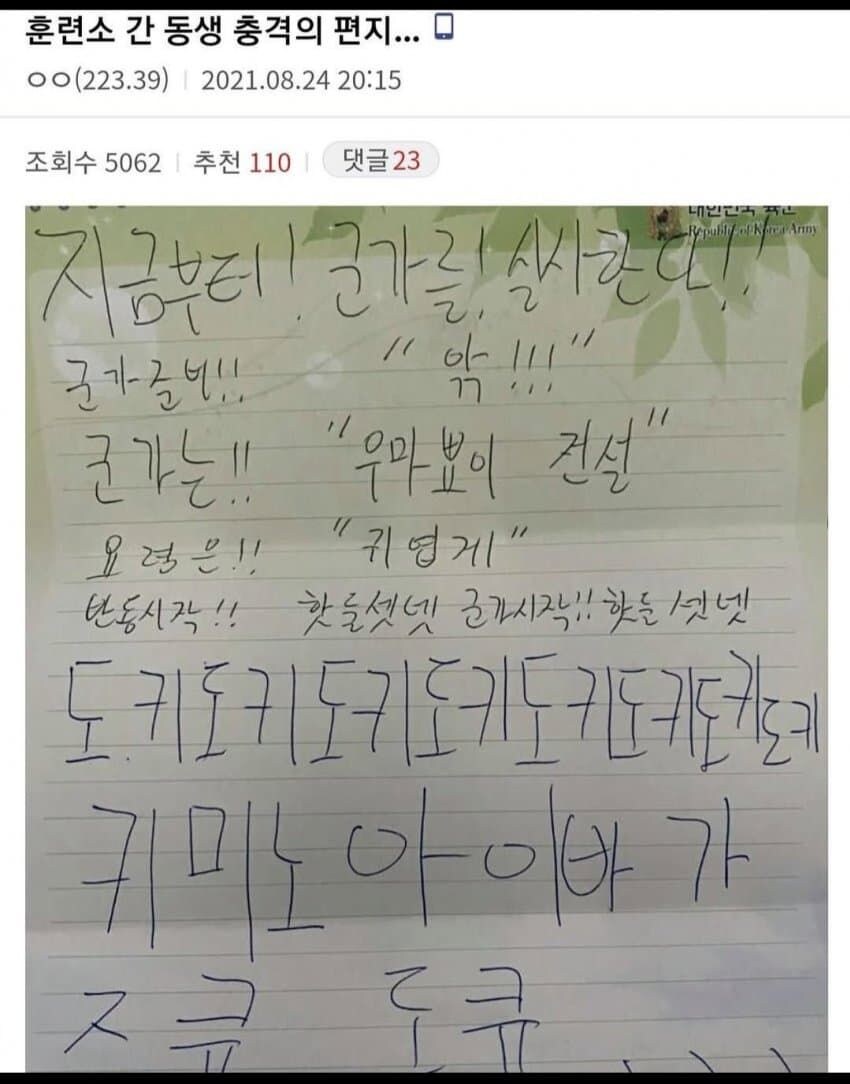 훈련소 간 동생 충격의 편지...
ㅇㅇ(223.39) | 2021.08.24 20:15
조회수 5062 | 추천 110 | 댓글 23
대한민국 육군
Republic of Korea Army
지금부터! 군가를! 실시한다!!
군가준비!! "악!!!"
군가는!! "우마뾰이 전설"
요령은!! "귀엽게"
반동시작!! 핫둘셋넷 군가시작!! 핫둘셋넷
도키도키도키도키도키도키도키도키
키미노아이바가
ズ큥 도큥